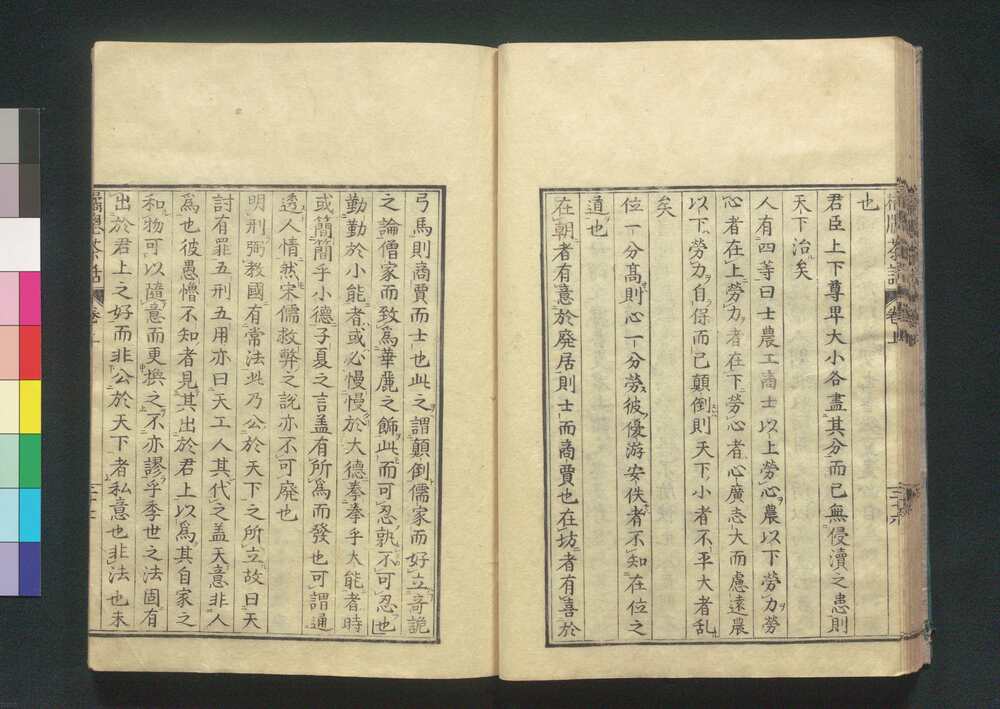 也
君臣上下尊卑大小各盡其分而已無侵瀆之患則
天下治矣
人有四等曰士農工商士以上勞心農以下勞力勞
心者在上勞力者在下勞心者心廣志大而慮遠農
以下勞力自保而已顛倒則天下小者不平大者乱
矣
位一分高則心一分勞彼優游安佚者不知在位之
道也
在朝者有意於廃居則士而商賈也在坊者有喜於
弓馬則商賈而士也此之謂顛倒儒家而好立奇詭
之論僧家而致爲華麗之飾此而可忍孰不可忍也
勤勤於小能者或必慢慢於大德拳拳乎大能者時
或簡簡乎小德子夏之言盖有所爲而發也可謂通
透人情然宋儒救弊之説亦不可廢也
明刑弼教國有常法此乃公於天下之所立故曰天
討有罪五刑五用亦曰天工人其代之盖天意非人
爲也彼愚懵不知者見其出於君上以爲其自家之
和物可以隨意而更換之不亦謬乎季世之法固有
出於君上之好而非公於天下者私意也非法也末
橘牕茶話
卷上